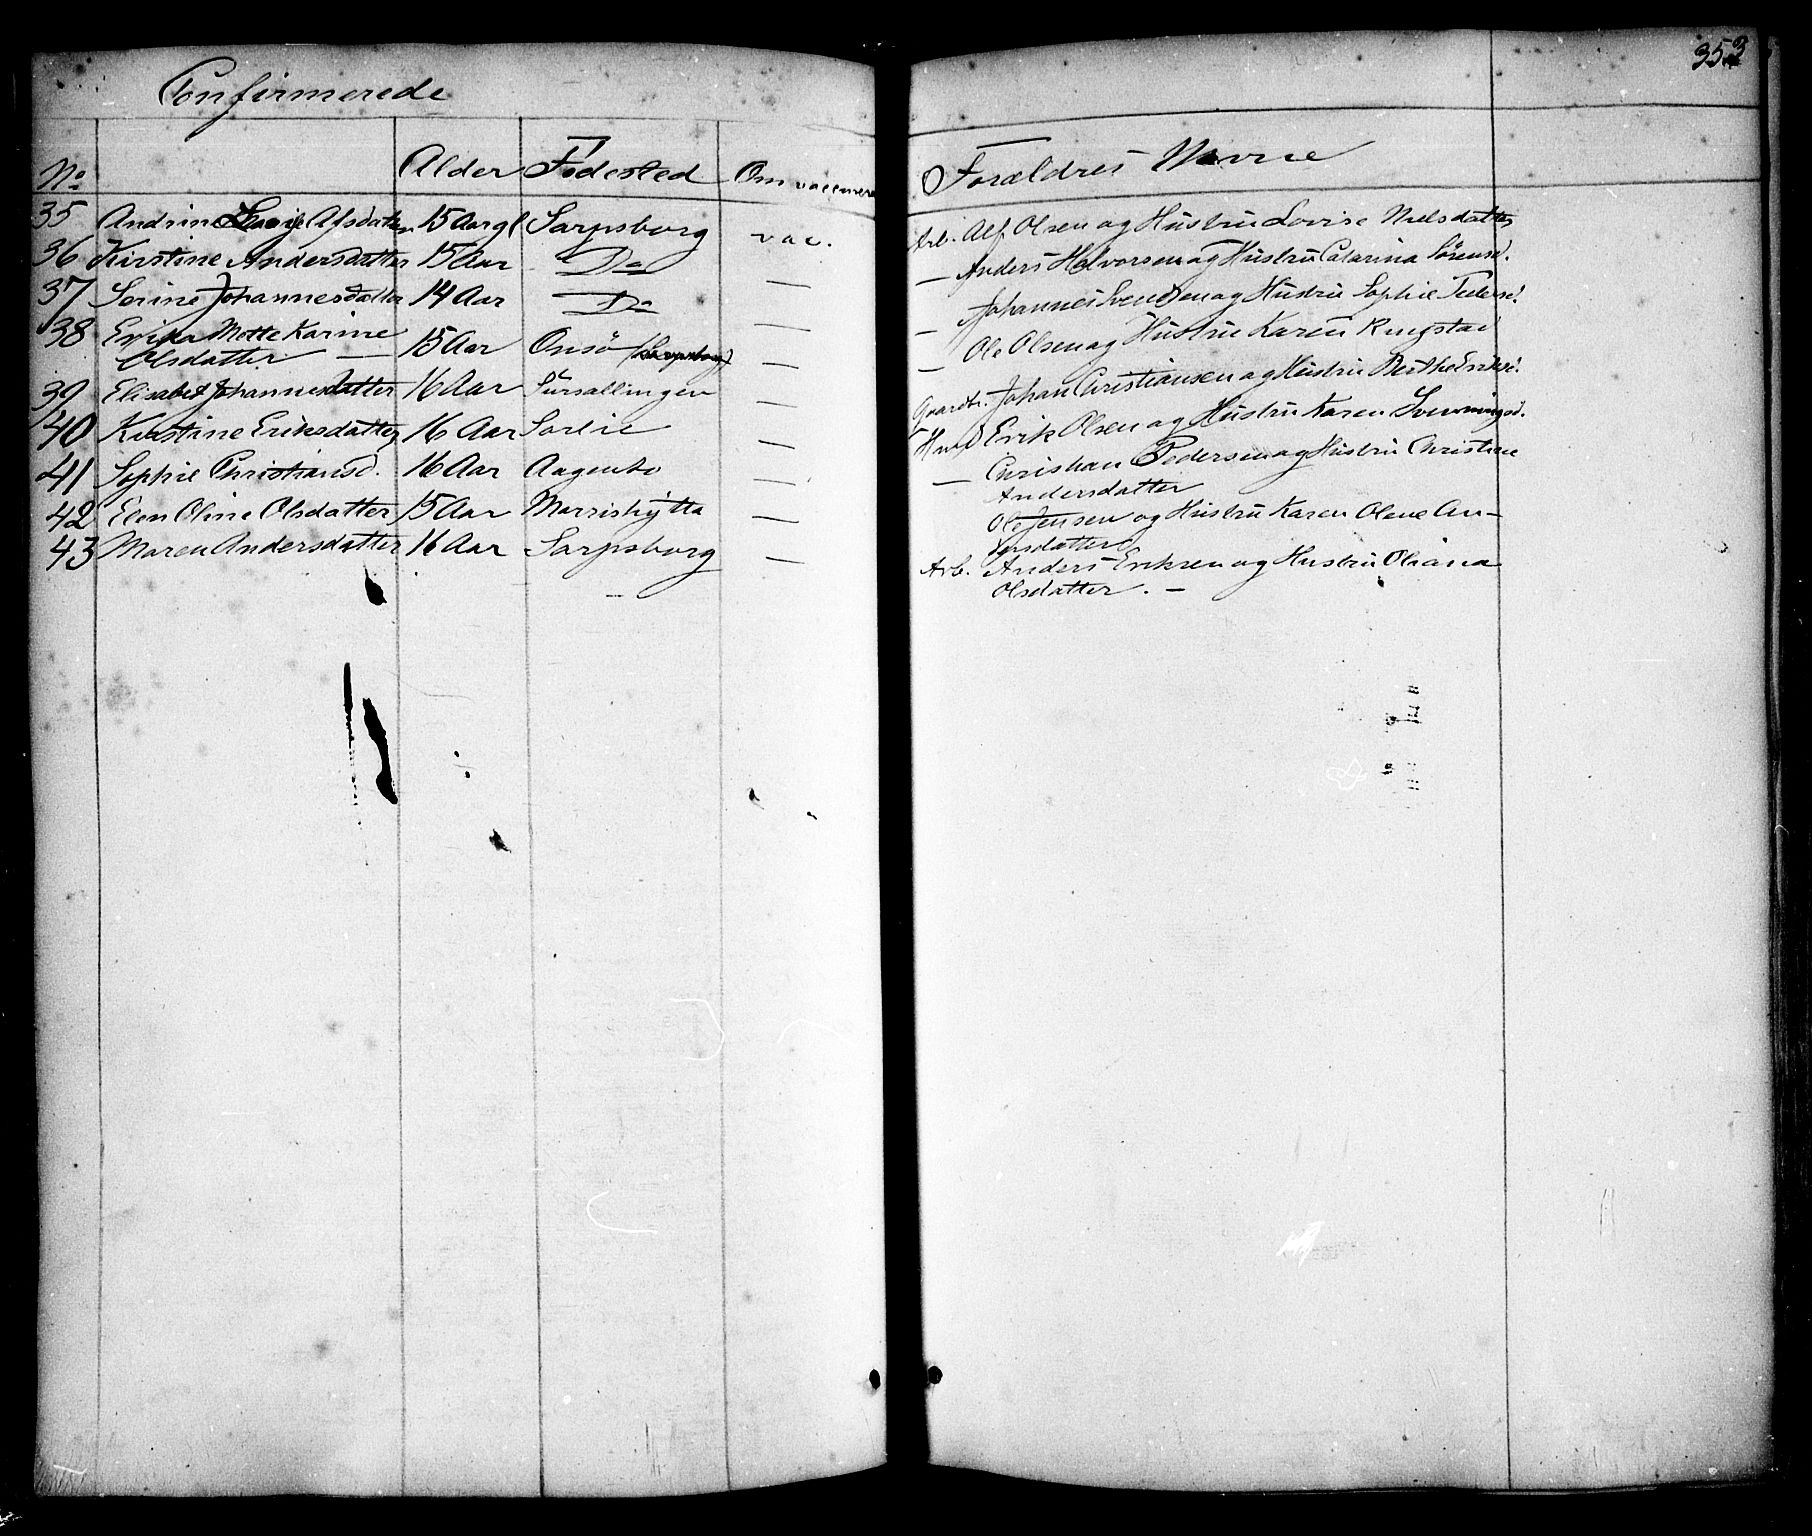 353
Confirmerede
No Alder Födested Om vaccinere
Forældres Navne
35 Andrine Lovise Alfsdatter 15 Aar gl Sarpsborg vac.
36 Kirstine Andersdatter 15 Aar Do —
37 Serine Johannesdatter 14 Aar Do —
38 Erika Mette Karine
Olsdatter — 15 Aar Onsö (Sarpsborg) —
39 Elisabet Johannesdatter 16 Aar —
40 Kirstine Eriksdatter 16 Aar Sorlie —
41 Sophie Christiansd. 16 Aar Aagenbo —
42 Elen Oline Olsdatter 15 Aar —
43 Maren Andersdatter 16 Aar Sarpsborg —
Arb. Alf Olsen og Hustru Lovise Nielsdatter
— Anders Halvorsen og Hustru Catarina Sörensd.
— Johannes Svendsen og Hustru Sophie Pedersd.
— Ole Olsen og Hustru Karen Ringstad
Gaardbr. Johan Christiansen og Hustru Berthe Eriksd.
Erik Olsen og Hustru Karen Svenningsd.
— Christian Pedersen og Hustru Christine
Andersdatter
Ole Jensen og Hustru Karen Olene An-
dersdatter
Arb. Anders Eriksen og Hustru Oliana
Olsdatter. —